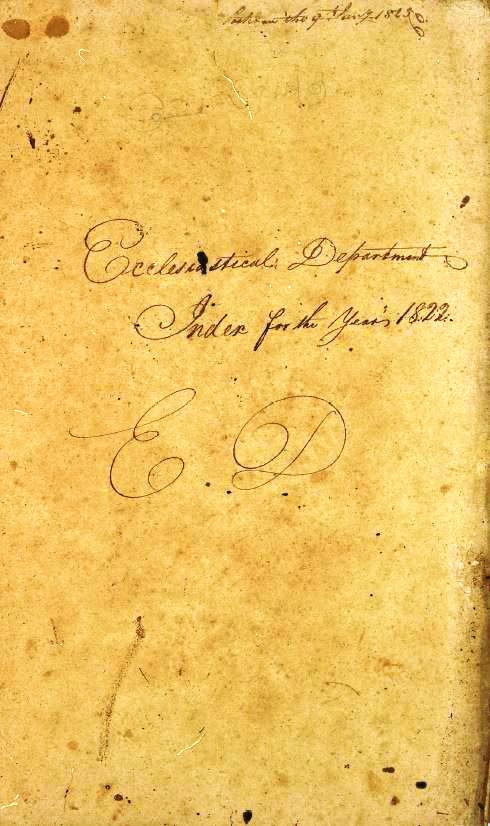 the 9th Jany 1823
Ecclesiastical Department
Index for the Year's 1822.
E. D